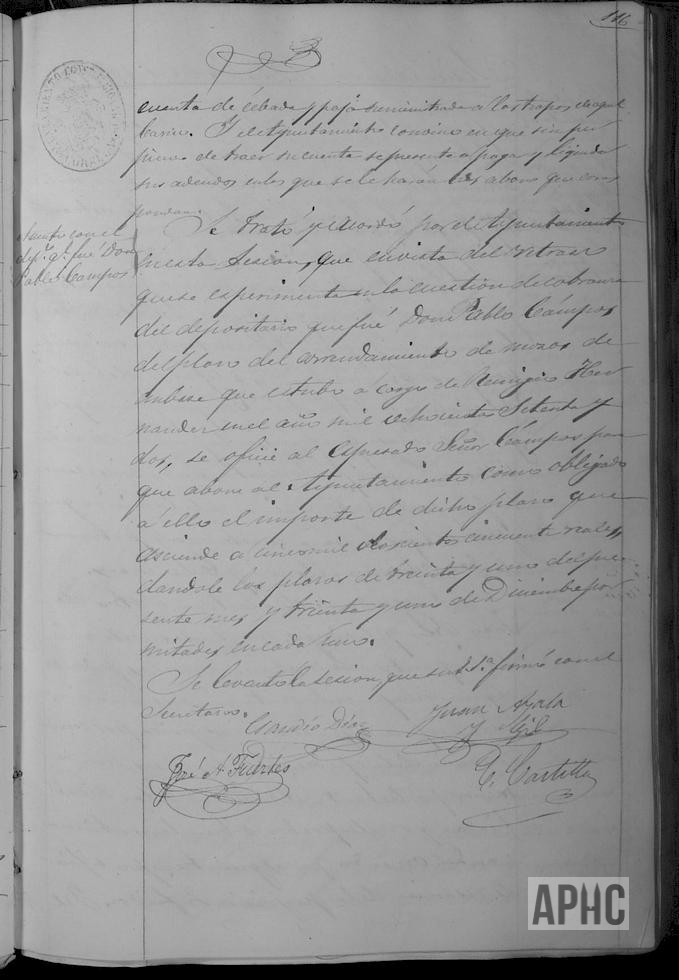 116
cuenta de cebada y paja suministrada a las tropas de aquel
Canton. Y el Ayuntamiento convino en que sin per
juicio de traer su cuenta se presente a pagar y liquidar
sus adeudos en los que se le harán los abonos que corres
pondan.
Asunto con el
dep.º q.e fué Don
Pablo Campos
Se trató y acordó por el Ayuntamiento
en esta Sesion, que en vista del retraso
que se esperimenta en la cuestion de cobranza
del depositario que fué Don Pablo Cámpos
del plazo del arrendamiento de mozos de
que estubo a cargo de Remigio Her
nandez en el año mil ochocientos Setenta y
dos, se oficie al espresado Señor Cámpos para
que abone al Ayuntamiento como obligado
a ello el importe de dicho plazo que
asciende a cinco mil doscientos cincuenta reales,
dandole los plazos de treinta y uno del pre
sente mes y treinta y uno de Diciembre por
mitades en cada uno.
Se levantó la sesion, que su S.ª firmó con el
Secretario.
Claudio Diaz
Juan Ayala
y Gil
José A. Fuertes
C. Castillo
APHC